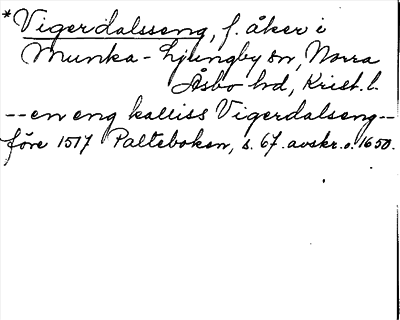 *Vigerdalsseng, f. åker i
Munka-Ljungby sn, Norra
Åsbo hd, Krist. l.
--en eng kalliss Vigerdalseng--
före 1517 Palteboken, s. 67. avskr. o. 1650.